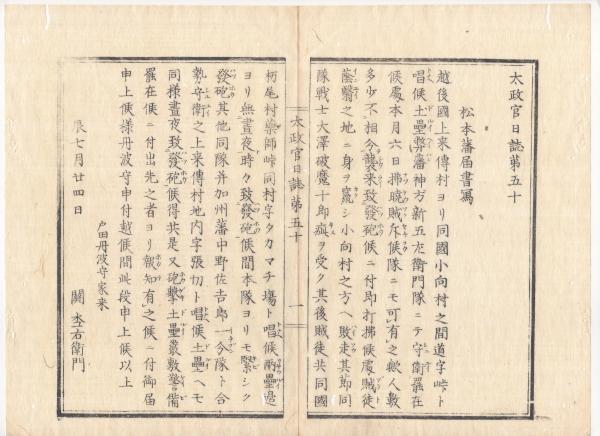 太政官日誌第五十
松本藩届書寫
越後國上來傳村ヨリ同國小向村之間道字峠ト
唱候土壘弊藩神方新五左衛門隊ニテ守衛罷在
候處本月六日拂曉賊斥候隊ニモ可有之歟人數
多少不相分襲来致發砲候ニ付即打拂候處賊徒
蔭翳之地ニ身ヲ竄シ小向村之方ヘ敗走其節同
隊戰士大澤破魔十郎疵ヲ受ク其後賊徒共同國
太政官日誌第五十
一
栃尾村藥師峠同村字タカマチ塲ト唱候兩壘邊
ヨリ無晝夜時々致發砲候間本隊ヨリモ緊シク
發砲其他同隊并加州藩中野佐吉郎一ト隊ト合
勢守衛之上来傳村地内字張切ト唱候土壘ヘモ
同様晝夜致發砲候得共是又砲擊土壘嚴敷警備
罷在候ニ付出先之者ヨリ報知有之候ニ付御届
申上候様丹波守申付越候間此段申上候以上
戸田丹波守家来
辰七月廿四日
關 杢右衛門